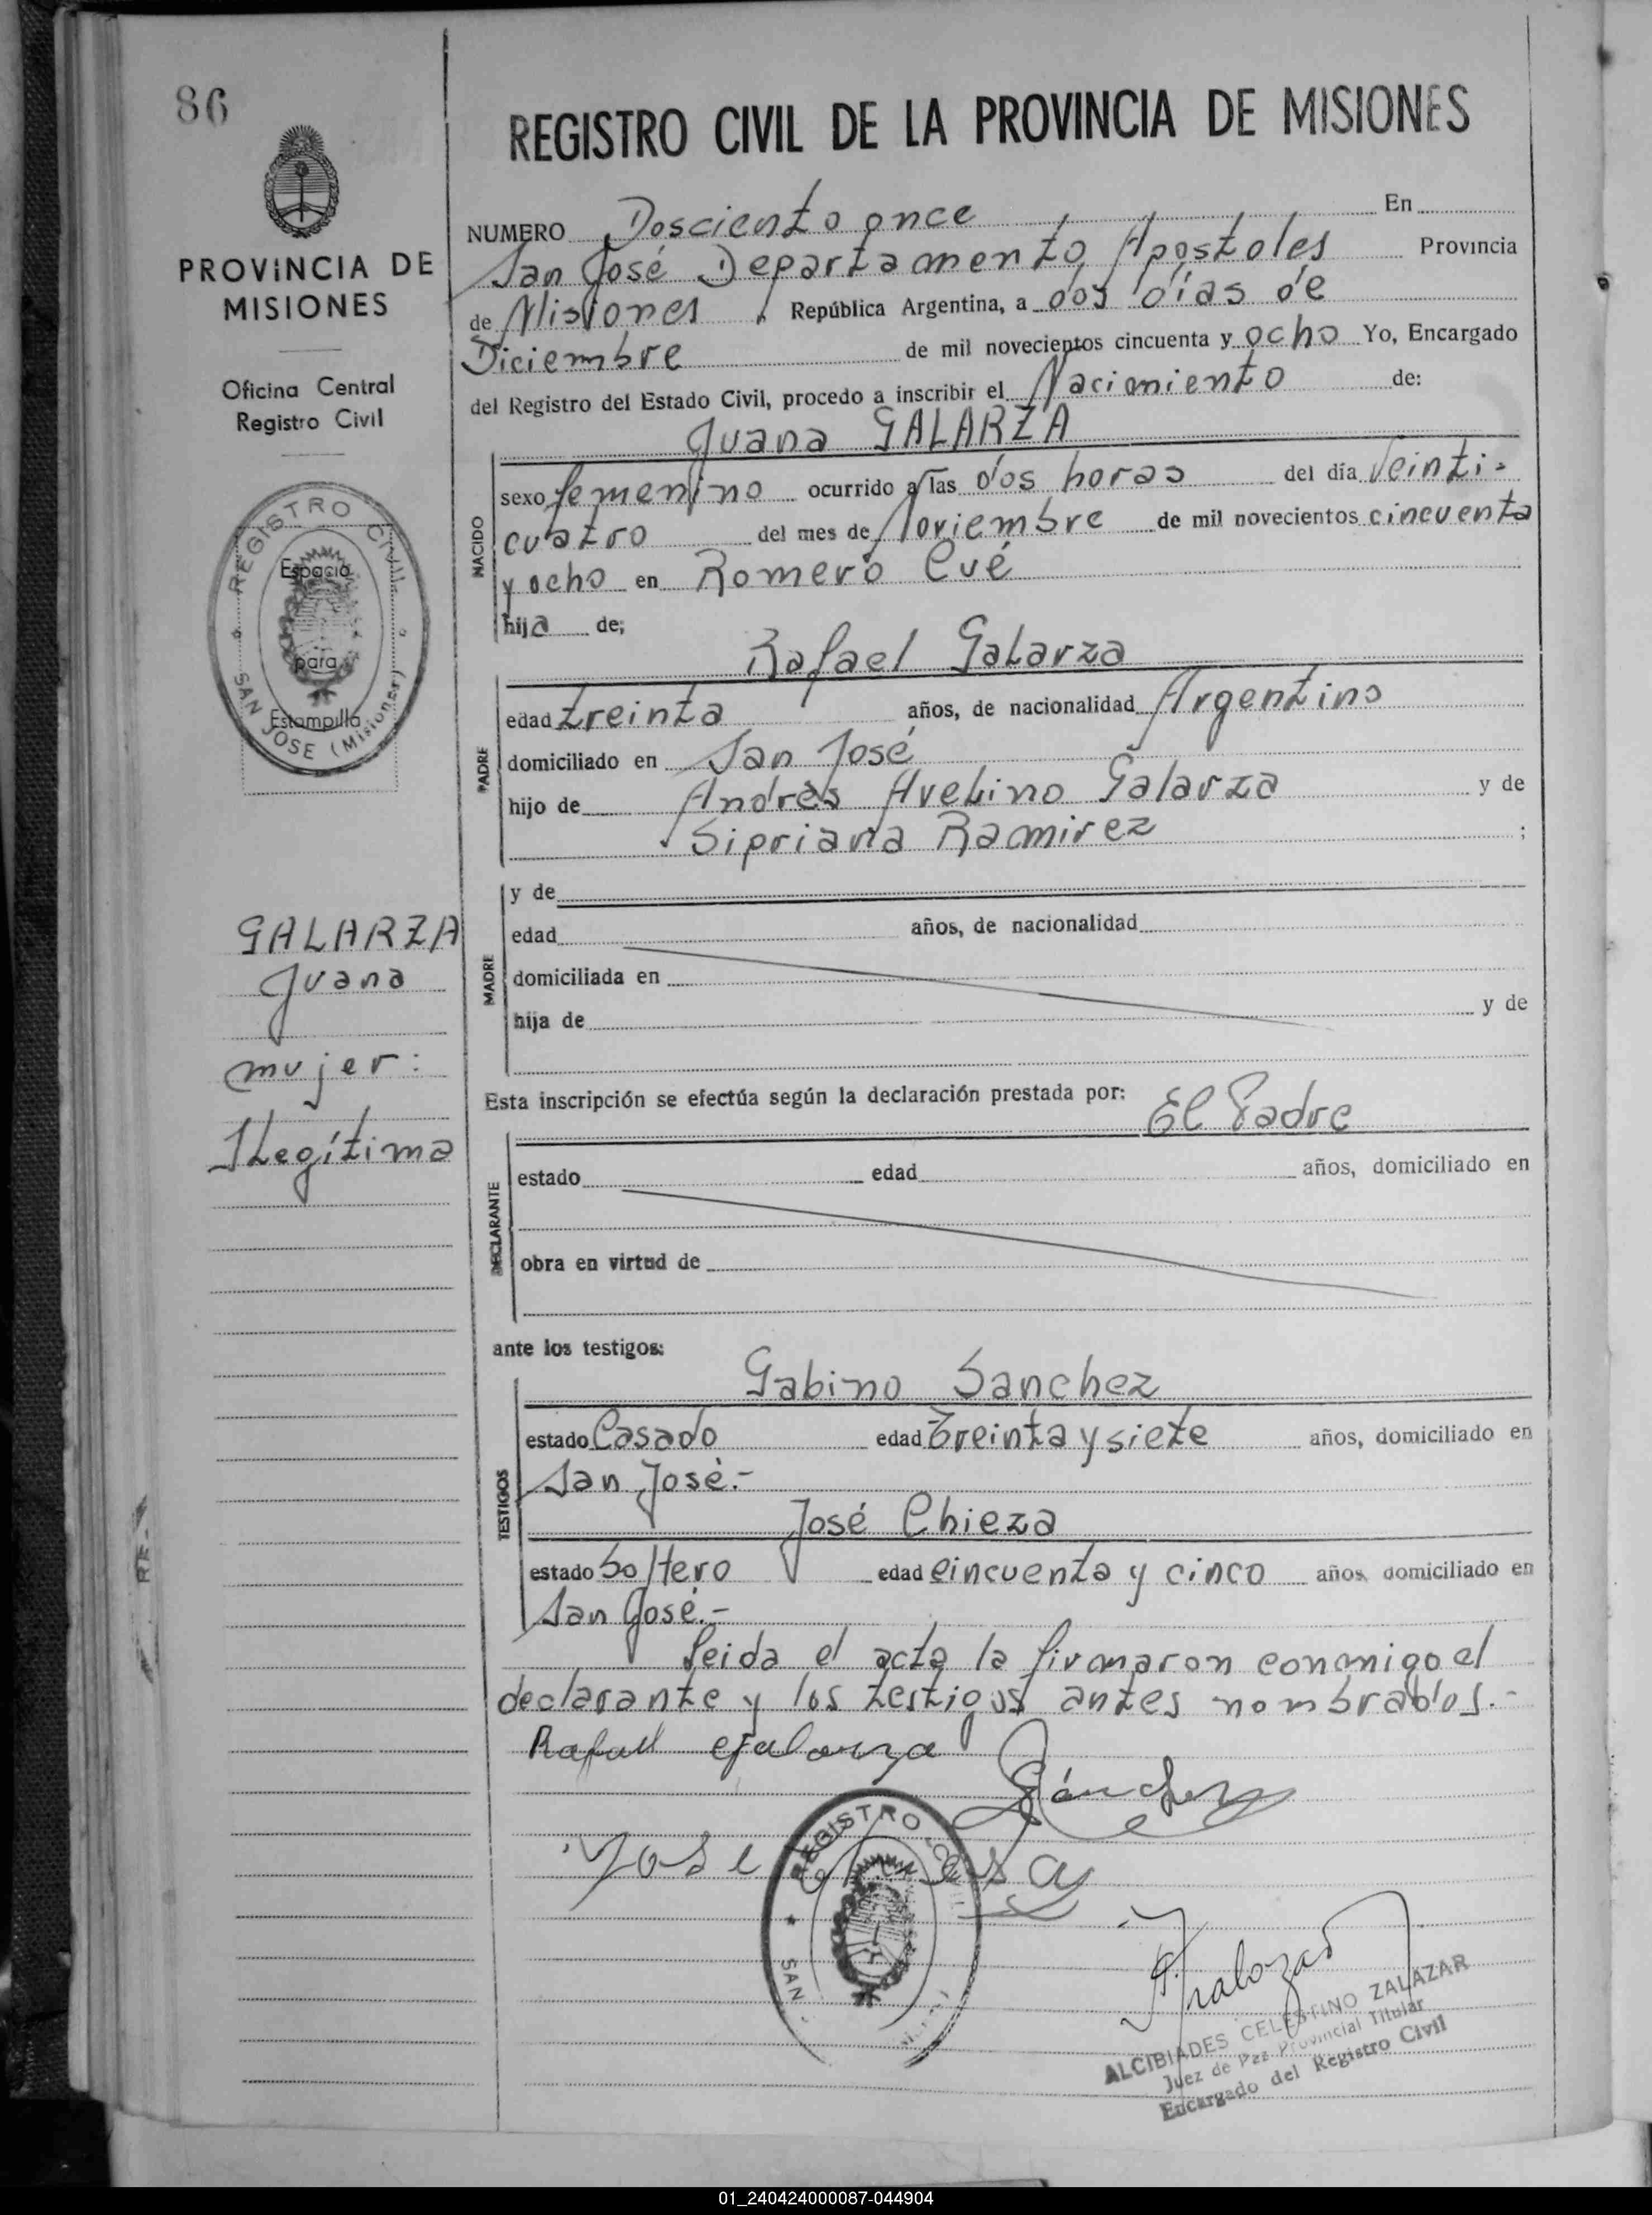 86
REGISTRO CIVIL DE LA PROVINCIA DE MISIONES
PROVINCIA DE
MISIONES
Oficina Central
Registro Civil
REGISTRO CIVIL
Espacio
para
Estampilla
SAN JOSE (Misiones)
GALARZA
Juana
mujer:
ILegítima
NUMERO Dosciento once En
San José Departamento Apóstoles Provincia
de Misiones, República Argentina, a dos días de
Diciembre de mil novecientos cincuenta y ocho Yo, Encargado
del Registro del Estado Civil, procedo a inscribir el Nacimiento de:
Juana GALARZA
NACIDO
sexo femenino ocurrido a las dos horas del día Veinti-
cuatro del mes de Noviembre de mil novecientos cincuenta
y ocho en Romero Cué
hija de;
Rafael Galarza
PADRE
edad treinta años, de nacionalidad Argentino
domiciliado en San José
hijo de Andrès Avelino Galarza y de
Sipriana Ramirez ;
MADRE
y de
edad años, de nacionalidad
domiciliada en
hija de y de
Esta inscripción se efectúa según la declaración prestada por: El Padre
DECLARANTE
estado edad años, domiciliado en
obra en virtud de
ante los testigos:
Gabino Sanchez
TESTIGOS
estado Casado edad Treinta y siete años, domiciliado en
San José.-
José Chieza
estado Soltero edad cincuenta y cinco años domiciliado en
San José.-
Leida el acta la firmaron conmigo el
declarante y los testigos antes nombrados.-
Rafael Galarza
Sánchez
Jose
REGISTRO
SAN
ALCIBIADES CELESTINO ZALAZAR
Juez de Paz Provincial Titular
Encargado del Registro Civil
RE.
01_240424000087-044904